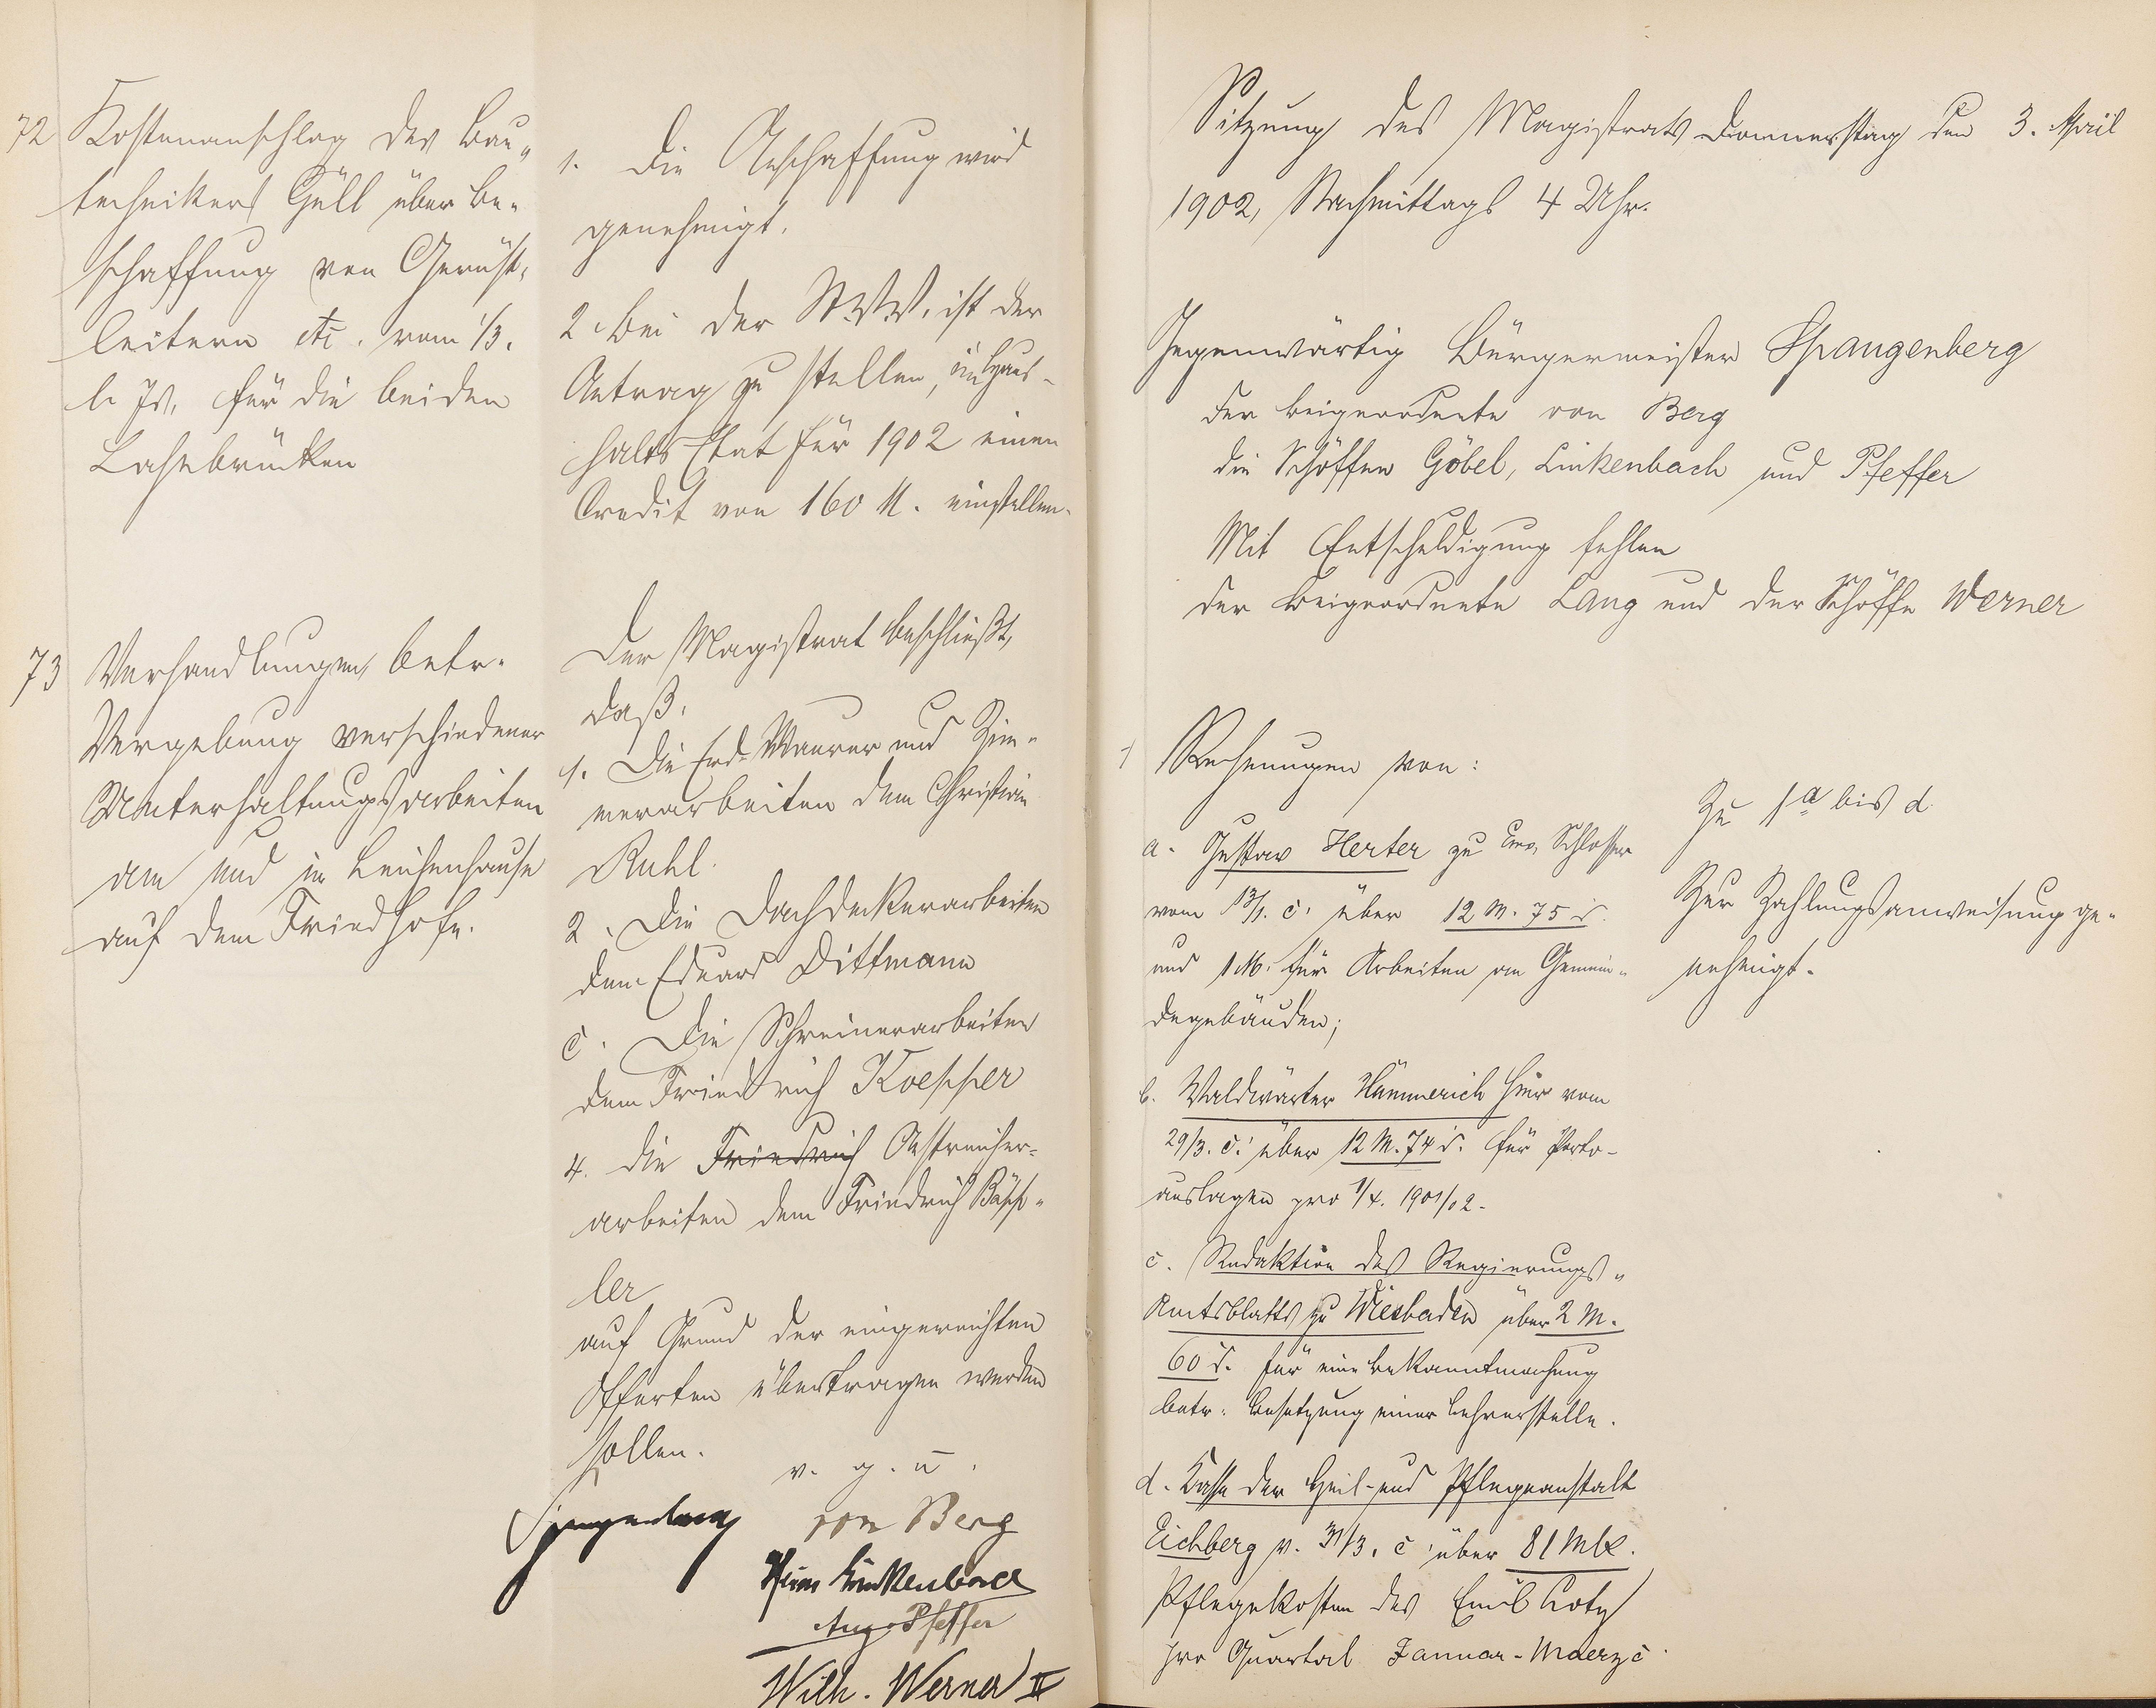 72 Kostenanschlag des Bau„
technikers Güll über Be„
schaffung von Gerüst„
leitern etc. vom 1/3.
l. Js. für die beiden
Lahnbrücken
1. Die Anschaffung wird
genehmigt.
2. Bei der St.V.V. ist der
Antrag zu stellen, im Haus-
halts Etat für 1902 einen
Credit von 160 M. einstellen.
73 Verhandlungen, betr.
Vergebung verschiedener
Unterhaltungsarbeiten
am und im Leichenhause
auf dem Friedhofe.
Der Magistrat beschließt,
daß,
1. Die Erd- Maurer und Zim„
merarbeiten dem Christian
Ruhl.
2. Die Dachdeckerarbeiten
dem Eduard Dittmann
c. Die Schreinerarbeiten
dem Friedrich Koepper
4. die Friedrich Anstreicher-
arbeiten dem Friedrich Bäpp„
ler
auf Grund der eingereichten
Offerten übertragen werden
sollen.
v. g. u.
Spangenberg von Berg
Linkenbach
Aug. Pfeffer
Wilh. Werner II
Sitzung des Magistrats Donnerstag den 3. April
1902, Nachmittags 4 Uhr.
Gegenwärtig Bürgermeister Spangenberg
der Beigeordnete von Berg
die Schöffen Göbel, Linkenbach und Pfeffer
Mit Entschuldigung fehlen
der Beigeordnete Lang und der Schöffe Werner
1 Rechnungen von:
a. Gustav Herter zu Ems, Schlosser
vom 13/1. c. über 12 M. 75 d.
und 1 M. für Arbeiten an Gemein„
degebäuden;
b. Waldwärter Hümmerich hier vom
29/3. c. über 12 M. 74 d. für Porto-
auslagen pro 1/4. 1901/02.
c. Redaktion des Regierungs„
Amtsblatts zu Wiesbaden über 2 M.
60 d. für eine Bekanntmachung
betr. Besetzung einer Lehrerstelle.
d. Kasse der Heil- und Pflegeanstalt
Eichberg v. 31/3. c. über 81 Mk.
Pflegekosten des Emil
pro Quartal Januar-Maerz c.
Zu 1 a bis d
Zur Zahlungsanweisung ge„
nehmigt.